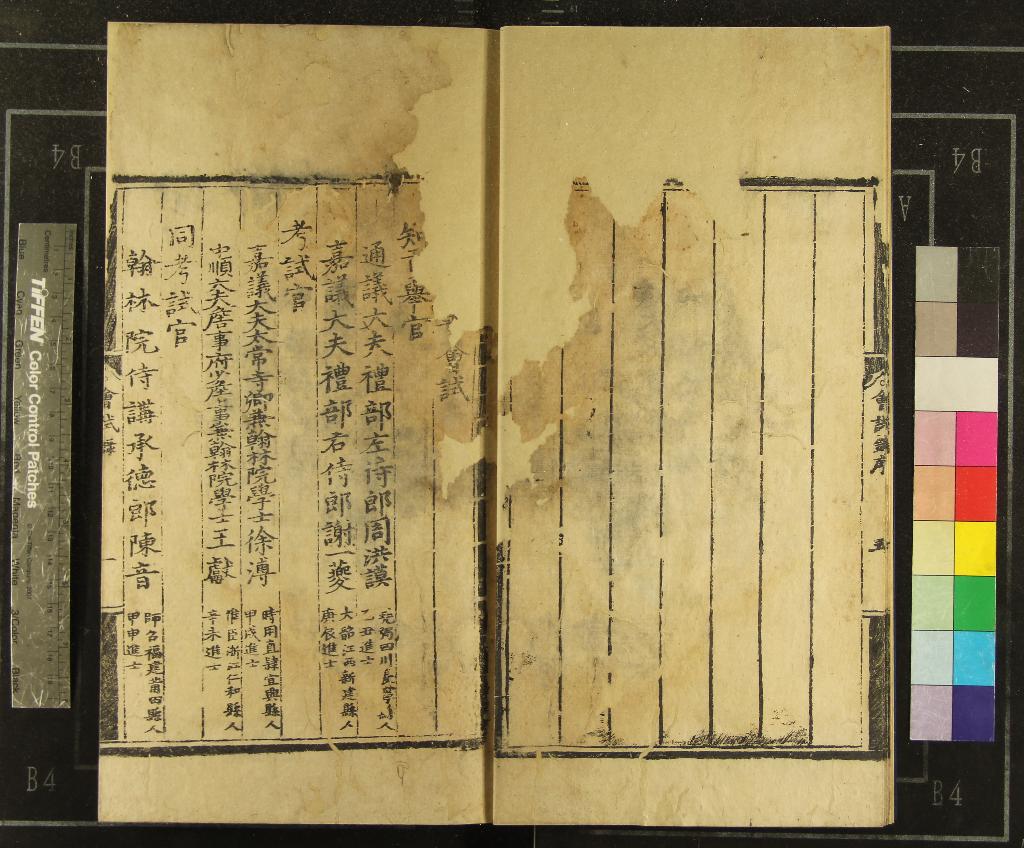 會試錄序
五
會試
知貢舉官
通議大夫禮部左侍郎周洪謨 堯弼四川長寧縣人 乙丑進士
嘉議大夫禮部右侍郎謝一夔 大韶江西新建縣人 庚辰進士
考試官
嘉議大夫太常寺卿兼翰林院學士徐溥 時用直隸宜興縣人 甲戌進士
中順大夫詹事府少詹事兼翰林院學士王獻 惟臣浙江仁和縣人 辛未進士
同考試官
翰林院侍講承德郎陳音 師召福建莆田縣人 甲申進士
會試錄
一
TIFFEN Color Control Patches
Centimetres
Blue
Cyan
Green
Yellow
Red
Magenta
White
3/Color
Black
B4
B4
A
B4
B4